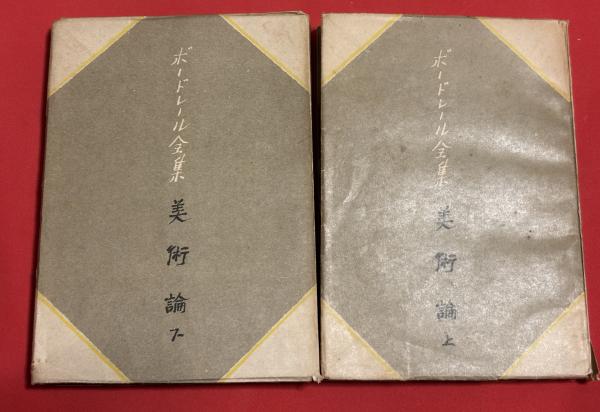 ボードレール全集
美術論
下
ボードレール全集
美術論
上